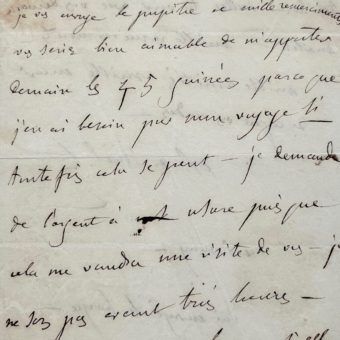 je vs envoye le pupitre et mille remerciments
vs seriez bien aimable de m'apporter
demain les 45 guinées parceque
j'en ai besoin pr mon voyage si
toutefois cela se peut — je demande
de l'argent à usure puisque
cela me vaudra une visite de vs — je
ne sors pas avant trois heures —